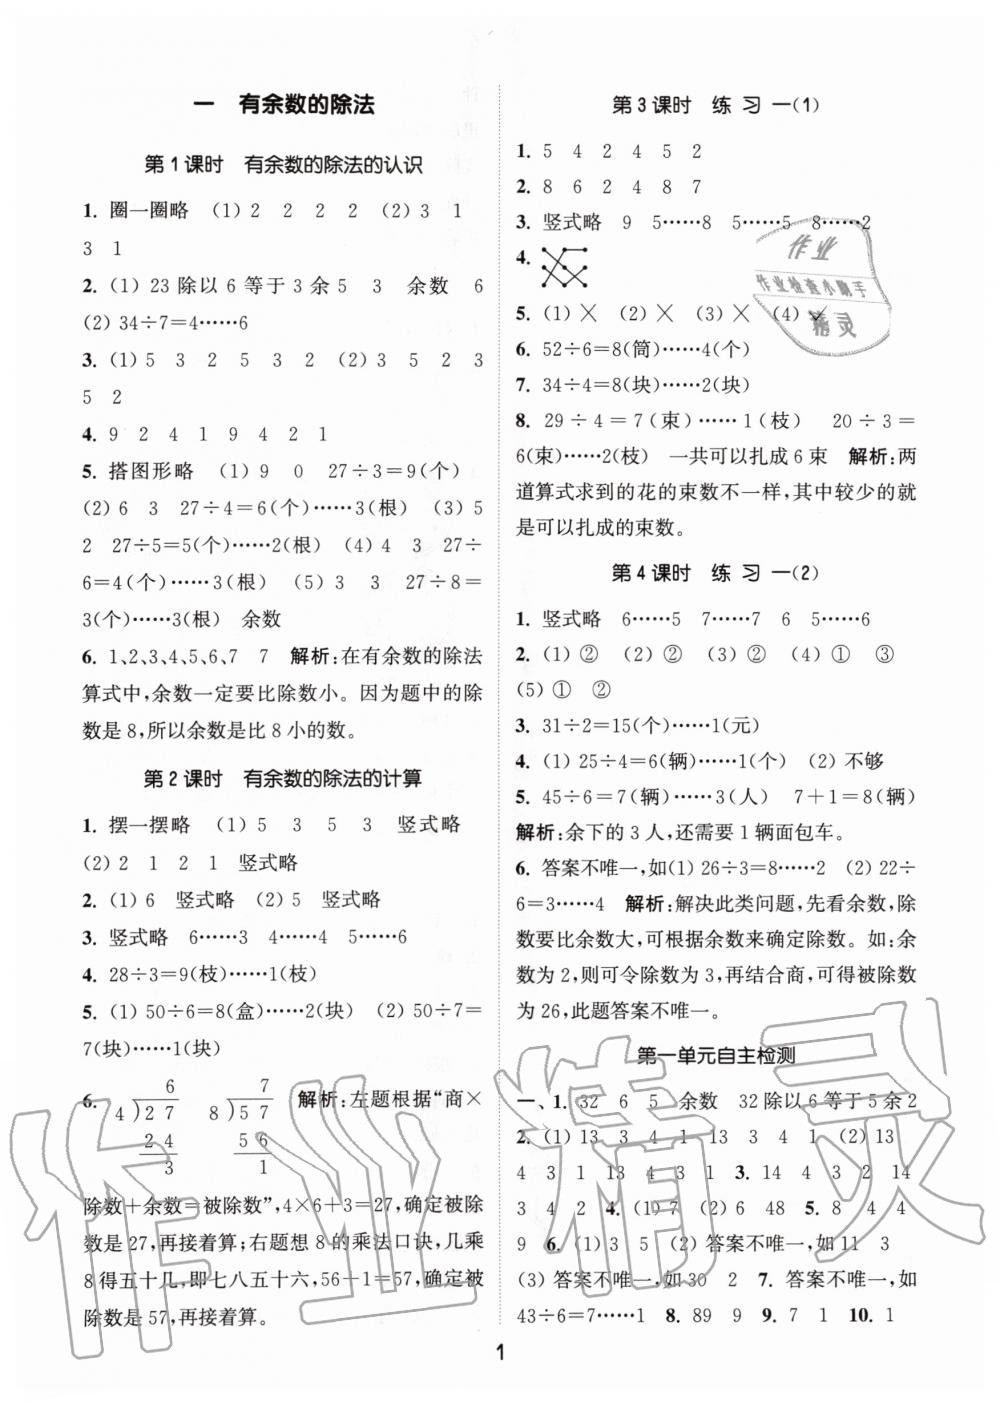 一 有余数的除法
第1课时 有余数的除法的认识
1. 圈一圈略 (1) 2 2 2 2 (2) 3 1
3 1
2. (1) 23 除以 6 等于 3 余 5 3 余数 6
(2) 34÷7=4……6
3. (1) 5 3 2 5 3 2 (2) 3 5 2 3
5 2
4. 9 2 4 1 9 4 2 1
5. 搭图形略 (1) 9 0 27÷3=9(个)
(2) 6 3 27÷4=6(个)……3(根) (3) 5
2 27÷5=5(个)……2(根) (4) 4 3 27÷
6=4(个)……3(根) (5) 3 3 27÷8=
3(个)……3(根) 余数
6. 1、2、3、4、5、6、7 7 解析:在有余数的除法
算式中,余数一定要比除数小。因为题中的除
数是 8,所以余数是比 8 小的数。
第2课时 有余数的除法的计算
1. 摆一摆略 (1) 5 3 5 3 竖式略
(2) 2 1 2 1 竖式略
2. (1) 6 竖式略 (2) 5 竖式略
3. 竖式略 6……3 4……4 5……6
4. 28÷3=9(枝)……1(枝)
5. (1) 50÷6=8(盒)……2(块) (2) 50÷7=
7(块)……1(块)
6 7
6. 4)27 8)57 解析:左题根据“商×
24 56
3 1
除数+余数=被除数”,4×6+3=27,确定被除
数是 27,再接着算;右题想 8 的乘法口诀,几乘
8 得五十几,即七八五十六,56+1=57,确定被
除数是 57,再接着算。
第3课时 练 习 一(1)
1. 5 4 2 4 5 2
2. 8 6 2 4 8 7
3. 竖式略 9 5……8 5……5 8……2
4.
5. (1) × (2) × (3) × (4) ✓
6. 52÷6=8(筒)……4(个)
7. 34÷4=8(块)……2(块)
8. 29÷4=7(束)……1(枝) 20÷3=
6(束)……2(枝) 一共可以扎成 6 束 解析:两
道算式求到的花的束数不一样,其中较少的就
是可以扎成的束数。
第4课时 练 习 一(2)
1. 竖式略 6……5 7……7 6 5……6
2. (1) ② (2) ② (3) ② (4) ① ③
(5) ① ②
3. 31÷2=15(个)……1(元)
4. (1) 25÷4=6(辆)……1(个) (2) 不够
5. 45÷6=7(辆)……3(人) 7+1=8(辆)
解析:余下的 3 人,还需要 1 辆面包车。
6. 答案不唯一,如(1) 26÷3=8……2 (2) 22÷
6=3……4 解析:解决此类问题,先看余数,除
数要比余数大,可根据余数来确定除数。如:余
数为 2,则可令除数为 3,再结合商,可得被除数
为 26,此题答案不唯一。
第一单元自主检测
一、1. 32 6 5 余数 32 除以 6 等于 5 余 2
2. (1) 13 3 4 1 13 3 4 1 (2) 13
4 3 1 13 4 3 1 3. 14 4 3 2 14
3 4 2 4. (1) 7 (2) 6 48 5. 8 4 4
9 6. (1) 3 5 (2) 答案不唯一,如 11 3
(3) 答案不唯一,如 30 2 7. 答案不唯一,如
43÷6=7……1 8. 89 9 9. 7 1 10. 1
1
作业
作业检查小助手
精灵
作业精灵